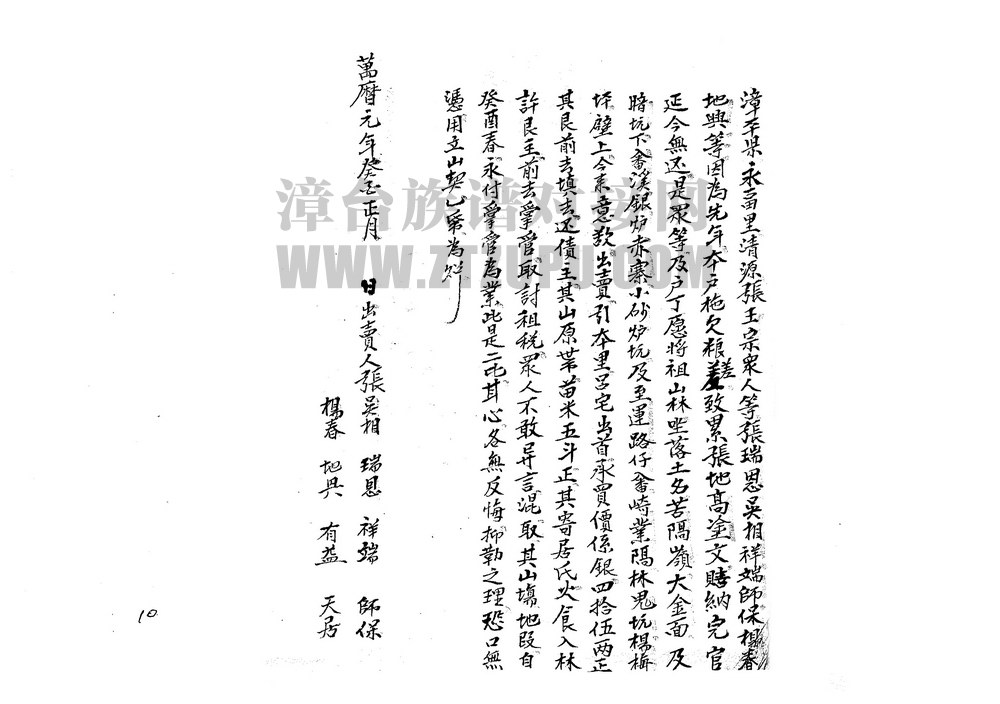 漳平県永畐里清源張王宗衆人等張瑞恩吴相祥端師保楊春
地興等因為先年本户拖欠粮差致累張地高塗文賠納完官
延今無还是衆等及户丁愿将祖山林坐落土名苦隔嶺大金面及
暗坑下畬溪銀炉赤寨小砂炉坑及至運路仔畬崎業隔林鬼坑楊梅
坪壁上今来意欲出賣引本里吕宅出首承買價係銀四拾伍两正
其艮前去填还債主其山原帯苗米五斗正其寄居氏火食入林
許艮主前去掌管取討租税衆人不敢异言混取其山塲地段自
癸酉春永付掌管為業此是二比甘心各無反悔抑勒之理恐口無
憑用立山契乙紙為炤
萬曆元年癸 正月 日出賣人張吴相 瑞恩 祥端 師保
楊春 地興 有益 天居
10
漳台族谱对接网
WWW.ZTZUPU.COM